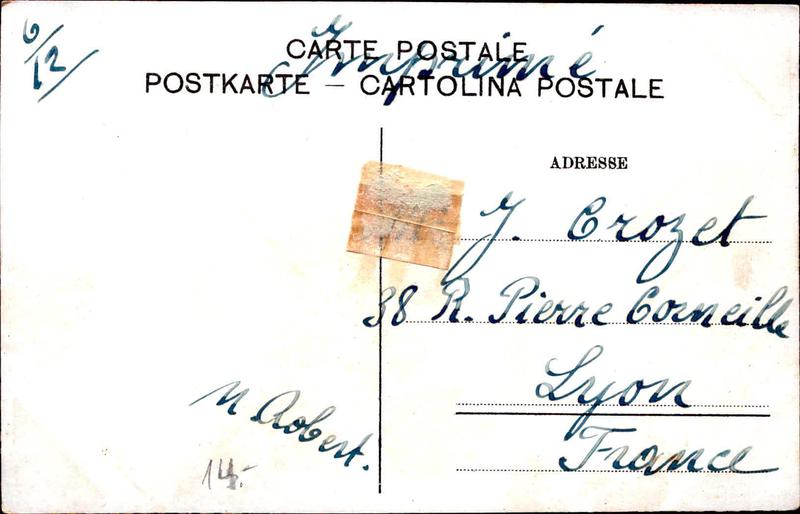 6/12
Imprimé
CARTE POSTALE
POSTKARTE — CARTOLINA POSTALE
ADRESSE
J. Crozet
38 R. Pierre Corneille
Lyon
France
M. Robert.
14.-